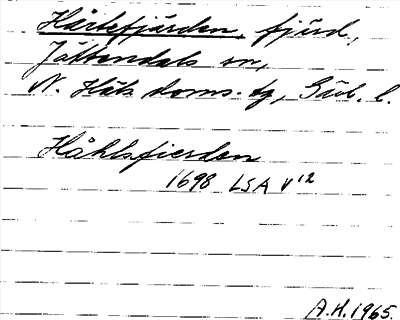 Hårtefjärden, fjärd,
Jättendals sn,
N. Häls doms.tg, Gäv. l.
Håhlsfierden
1698 LSA V 12
A.H. 1965.